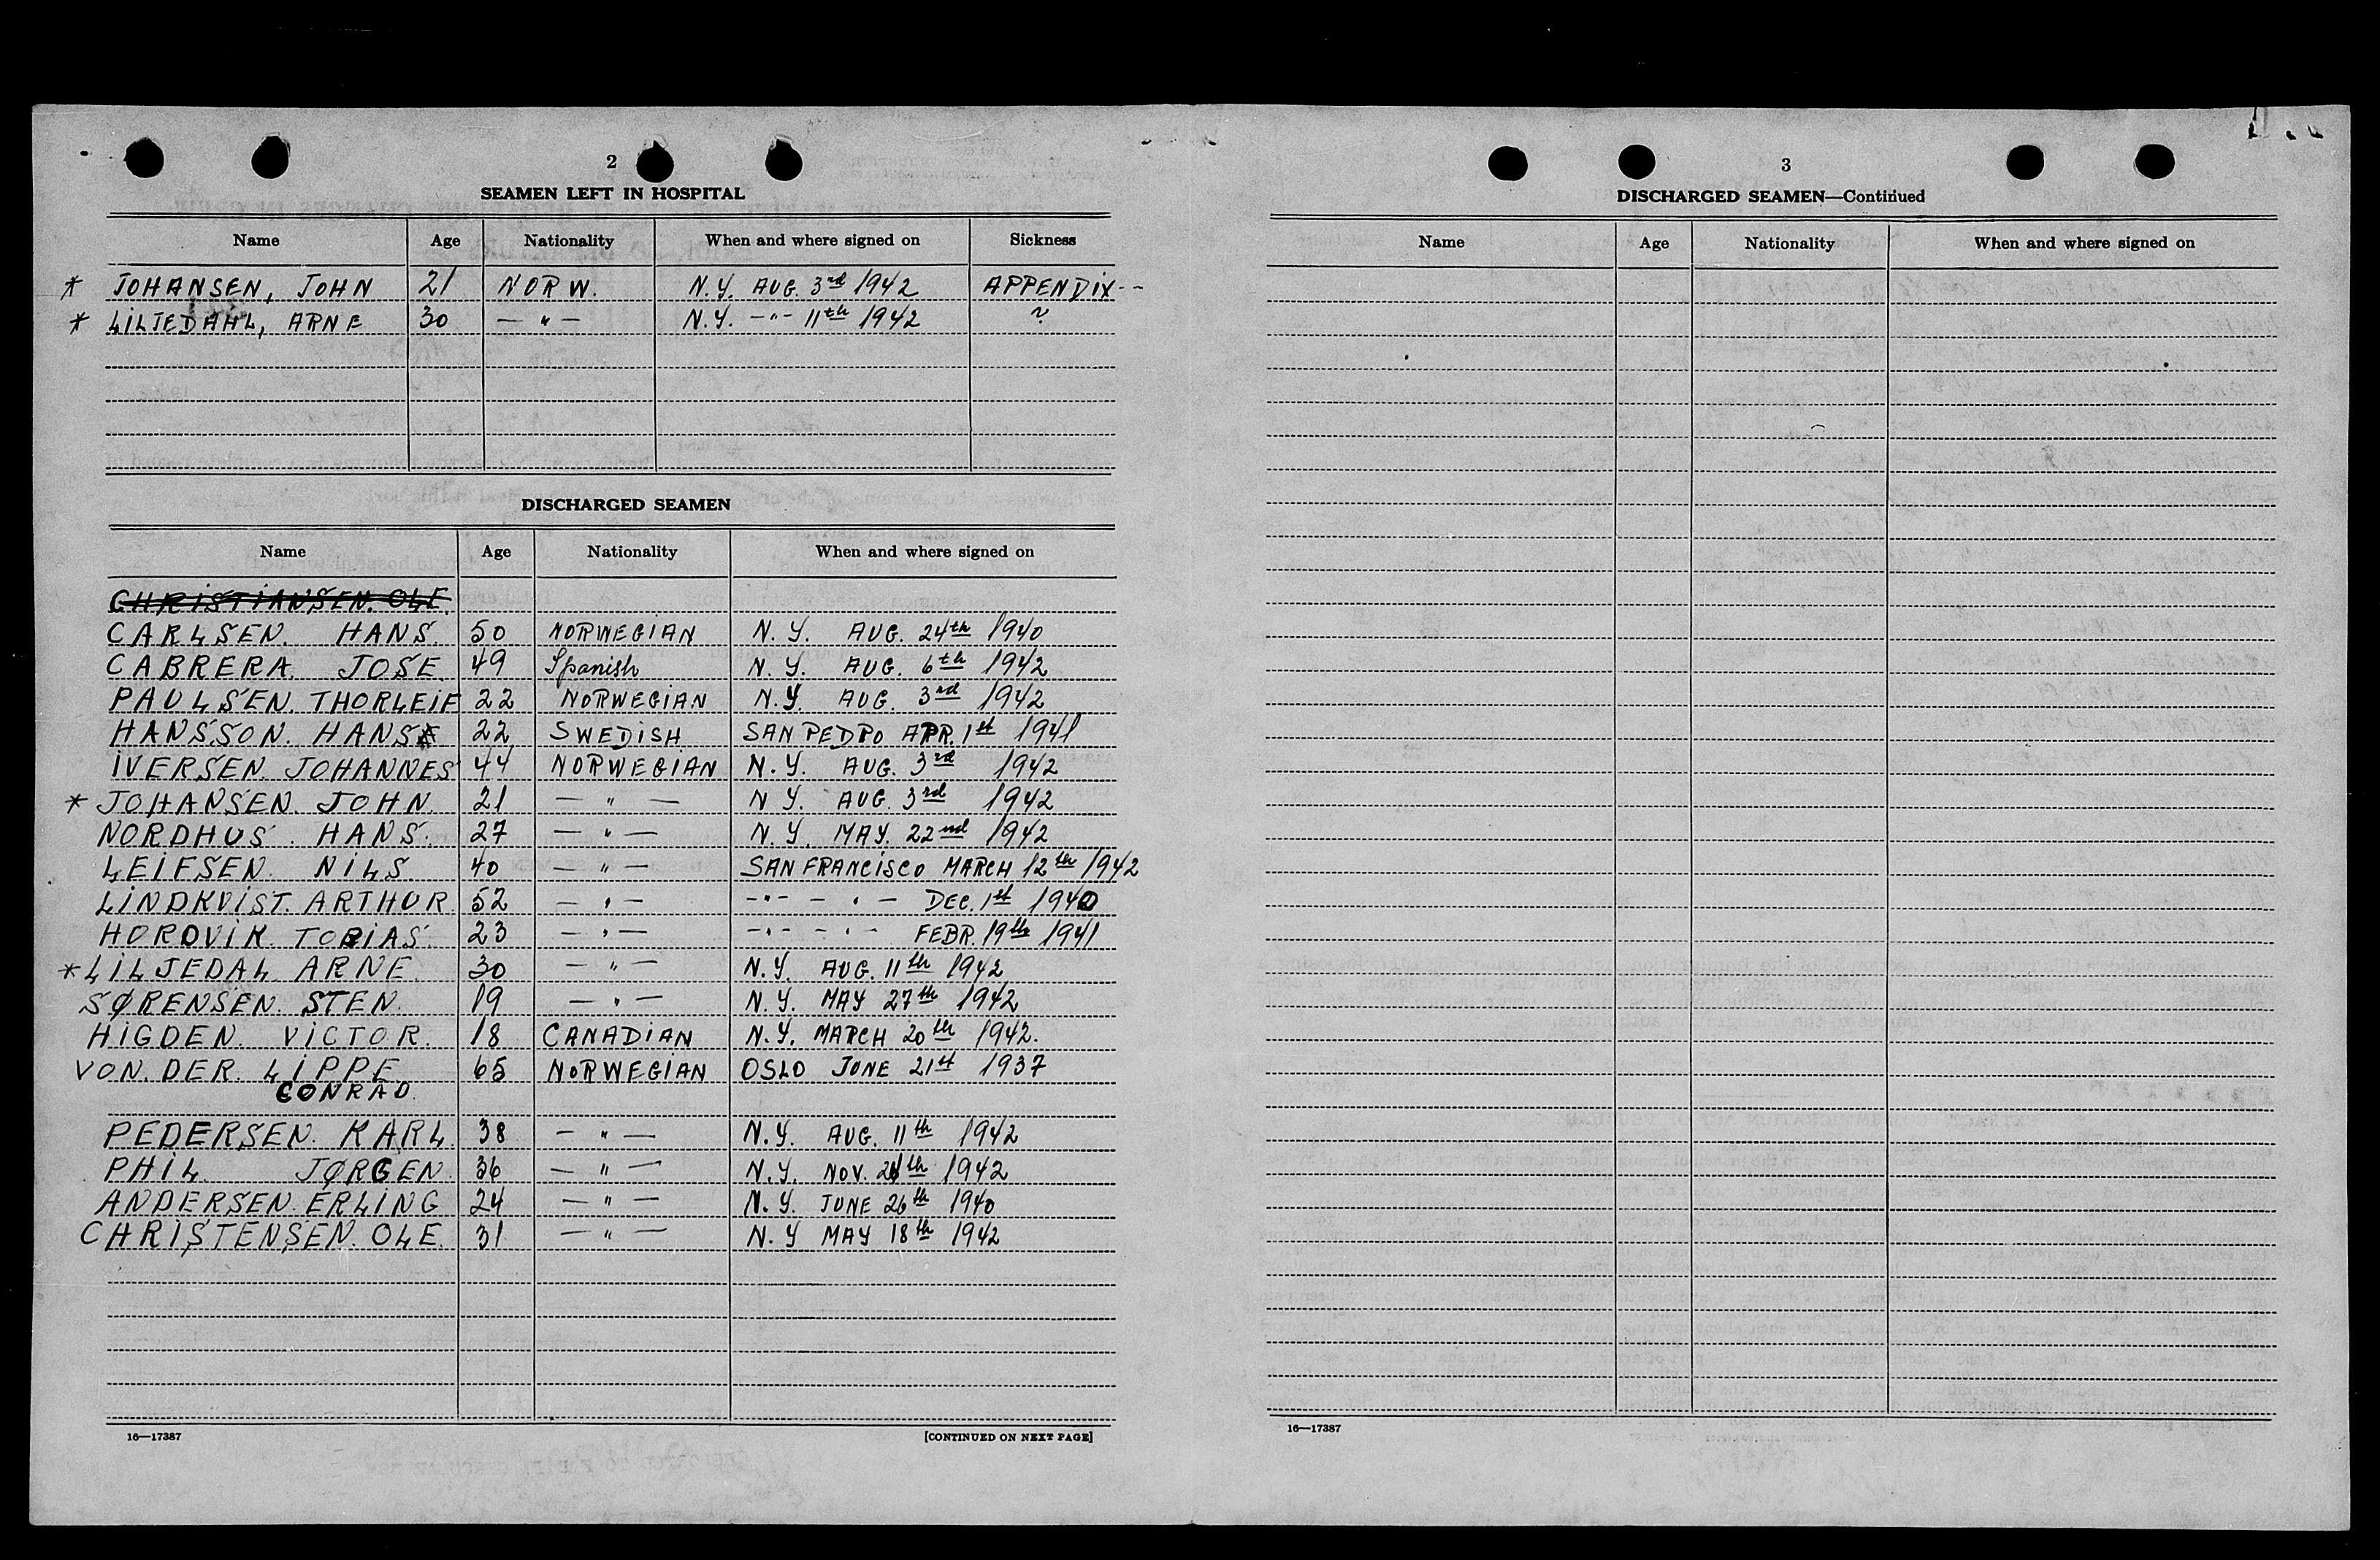 2
SEAMEN LEFT IN HOSPITAL
Name Age Nationality When and where signed on Sickness
* JOHANSEN, JOHN 21 NORW. N.Y. AUG. 3rd 1942 APPENDIX--
* LILJEDAHL, ARNE 30 — " — N.Y. -"- 11th 1942 ?
DISCHARGED SEAMEN
Name Age Nationality When and where signed on
CHRISTIANSEN. OLE.
CARLSEN. HANS. 50 NORWEGIAN N.Y. AUG. 24th 1940
CABRERA. JOSE. 49 Spanish N.Y. AUG. 6th 1942
PAULSEN. THORLEIF 22 NORWEGIAN N.Y. AUG. 3rd 1942
HANSSON. HANS 22 SWEDISH. SAN PEDRO APR. 1st 1941
IVERSEN. JOHANNES 44 NORWEGIAN N.Y. AUG. 3rd 1942
* JOHANSEN. JOHN. 21 — " — N Y. AUG. 3rd 1942
NORDHUS. HANS. 27 — " — N.Y. MAY. 22nd 1942
LEIFSEN. NILS. 40 — " — SAN FRANCISCO MARCH 12th 1942
LINDKVIST. ARTHUR. 52 — " — -"- — " — DEC. 1st 1940
HORDVIK. TOBIAS. 23 — " — -"- — " — FEBR. 19th 1941
* LILJEDAL. ARNE. 30 — " — N.Y. AUG. 11th 1942
SØRENSEN. STEN. 19 — " — N.Y. MAY 27th 1942
HIGDEN. VICTOR. 18 CANADIAN N.Y. MARCH 20th 1942.
VON. DER. LIPPE 65 NORWEGIAN OSLO JUNE 21st 1937
CONRAD.
PEDERSEN. KARL. 38 — " — N.Y. AUG. 11th 1942
PHIL. JØRGEN. 36 — " — N.Y. NOV. 1942
ANDERSEN. ERLING 24 — " — N.Y. JUNE 26th 1940
CHRISTENSEN. OLE. 31 — " — N.Y MAY 18th 1942
16—17387 [CONTINUED ON NEXT PAGE]
3
DISCHARGED SEAMEN—Continued
Name Age Nationality When and where signed on
16—17387